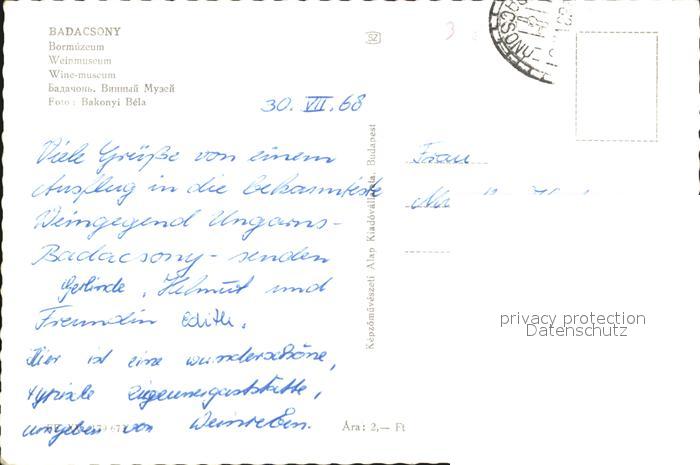 BADACSONY
Bormúzeum
Weinmuseum
Wine-museum
Бадачонь. Винный Музей
Foto: Bakonyi Béla
30. VII. 68
Viele Grüße von einem
Ausflug in die bekannteste
Weingegend Ungarns-
Badacsony- senden
Gerlinde, Helmut und
Freundin Edith.
Hier ist eine wunderschöne,
typische Zigeunergaststätte,
umgeben von Weinreben.
Képzőművészeti Alap Kiadóvállalata, Budapest
Ára: 2,— Ft
3
Frau
privacy protection
Datenschutz